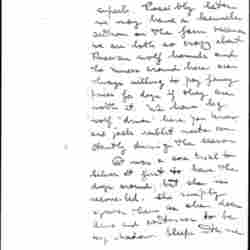 expert. Possibly later
we may have a kennels
section on the farm because
we are both so crazy about
Russian wolf hounds and
the owners around here are
always willing to pay fancy
price for dogs if they are
worth it. We have big
wolf "drives" here you know
and jack rabbit hunts con
stantly during the season
It was a
believe at first to have the
dogs around, but she is
reconciled. She simply
ignores them as she does
and continues to be
my shadow. Sleeps with me